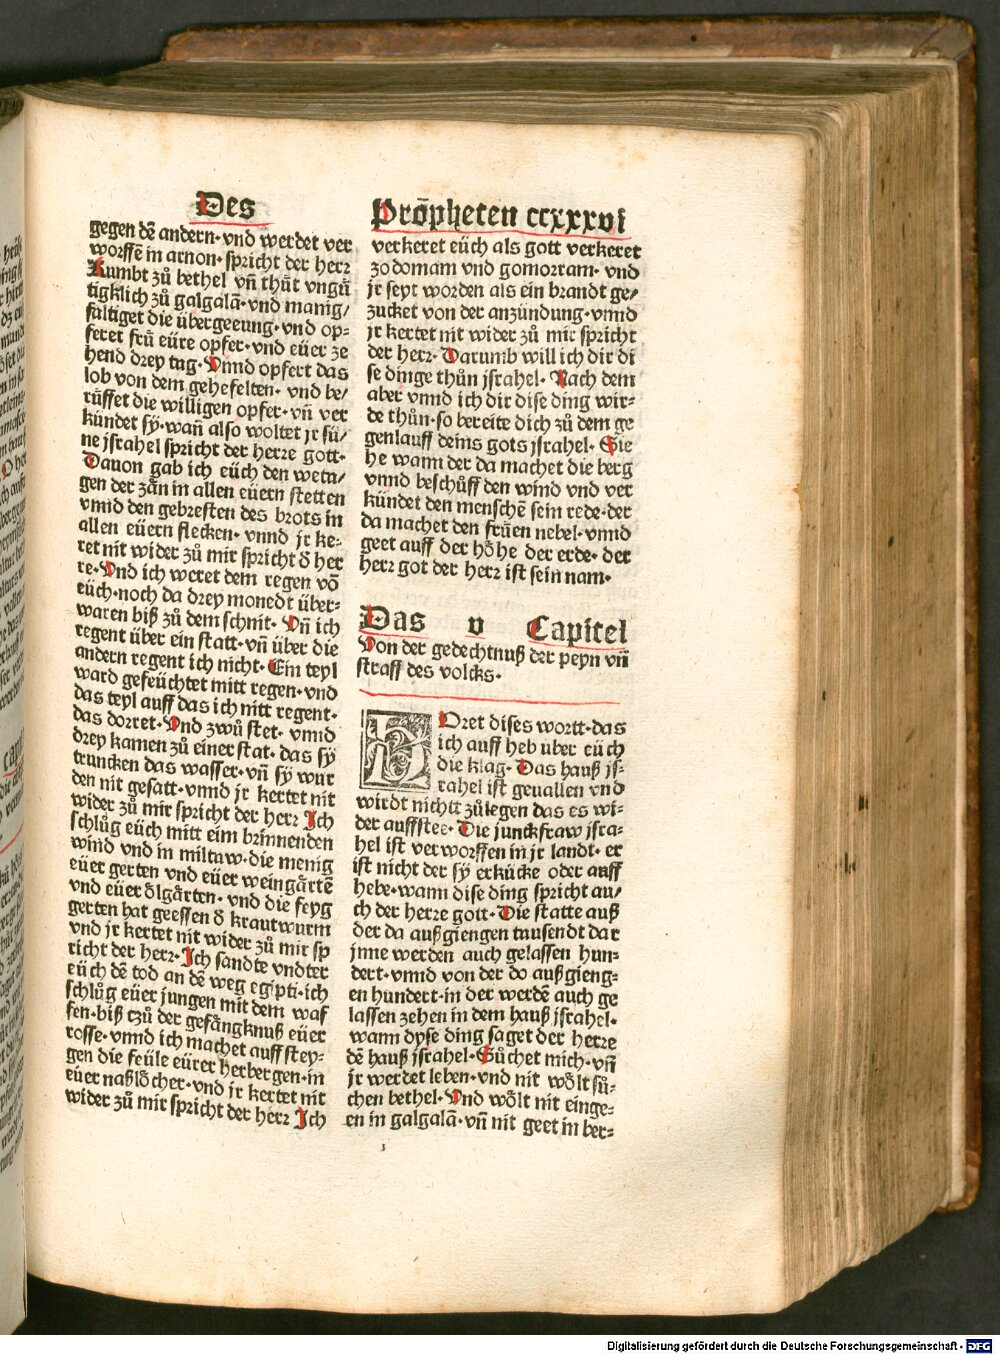 Des
gegen dē andern·vnd werdet ver
worffē in arnon·spricht der herr
Kumbt zů bethel vn̄ thůt vngů
tigklich zů galgalā·vnd manig/
faltiget die übergeeung·vnd op=
feret frů eüre opfer·vnd eüer ze
hend drey tag·Vnnd opfert das
lob von dem gehefelten·vnd be/
rüffet die willigen opfer·vn̄ ver
kündet sÿ·wan̄ also woltet jr sü/
ne jsrahel spricht der herre gott·
Dauon gab ich eüch den weta/
gen der zän in allen eüern stetten
vnnd den gebresten des brots in
allen eüern flecken·vnnd jr ke=
ret nit wider zů mir spricht d̄ her
re·Vnd ich weret dem regen vō
eüch·noch da drey monedt über=
waren biß zů dem schnit·Vn̄ ich
regent über ein statt·vn̄ über die
andern regent ich nicht·Ein teyl
ward gefeüchtet mitt regen·vnd
das teyl auff das ich nitt regent·
das dorret·Vnd zwů stet·vnnd
drey kamen zů einer stat·das sÿ
truncken das wasser·vn̄ sÿ wur
den nit gesatt·vnnd jr kertet nit
wider zů mir spricht der herr Ich
schlůg eüch mitt eim brinnenden
wind vnd in miltaw·die menig
eüer gerten vnd eüer weingärtē
vnd eüer ölgärten·vnd die feyg
gerten hat geessen d̄ krautwurm
vnd jr kertet nit wider zů mir sp
richt der herr·Ich sandte vndter
eüch dē tod an dē weg egipti·ich
schlůg eüer jungen mit dem waf
fen·biß czů der gefängknuß eüer
rosse·vnnd ich machet auff stey=
gen die feüle eürer herbergen·in
eüer naßlöcher·vnd jr kertet nit
wider zů mir spricht der herr Ich
Prōpheten ccxxxvi
verkeret eüch als gott verkeret
zodomam vnd gomorram·vnd
jr seyt worden als ein brandt ge/
zucket von der anzündung·vnnd
jr kertet nit wider zů mir spricht
der herr·Darumb will ich dir di
se dinge thůn jsrahel·Nach dem
aber vnnd ich dir dise ding wir=
de thůn·so bereite dich zů dem ge
genlauff deins gots jsrahel·Sie
he wann der da machet die berg
vnnd beschůff den wind vnd ver
kündet den menschē sein rede·der
da machet den frůen nebel·vnnd
geet auff der höhe der erde·der
herr got der herr ist sein nam·
Das v Capitel
Von der gedechtnuß der peyn vn̄
straff des volcks·
HOret dises wortt·das
ich auff heb uber eüch
die klag·Das hauß js=
rahel ist geuallen vnd
wirdt nichtt zůlegen das es wi=
der auffstee·Die junckfraw jsra=
hel ist verworffen in jr landt·er
ist nicht der sÿ erkücke oder auff
hebe·wann dise ding spricht au/
ch der herre gott·Die statte auß
der da außgiengen tausendt dar
jnne werden auch gelassen hun=
dert·vnnd von der do außgieng=
en hundert·in der werdē auch ge
lassen zehen in dem hauß jsrahel·
wann dyse ding saget der herre
dē hauß jsrahel·Sůchet mich·vn̄
jr werdet leben·vnd nit wölt sů=
chen bethel·Vnd wölt nit einge=
en in galgalā·vn̄ nit geet in ber=
Digitalisierung gefördert durch die Deutsche Forschungsgemeinschaft - DFG